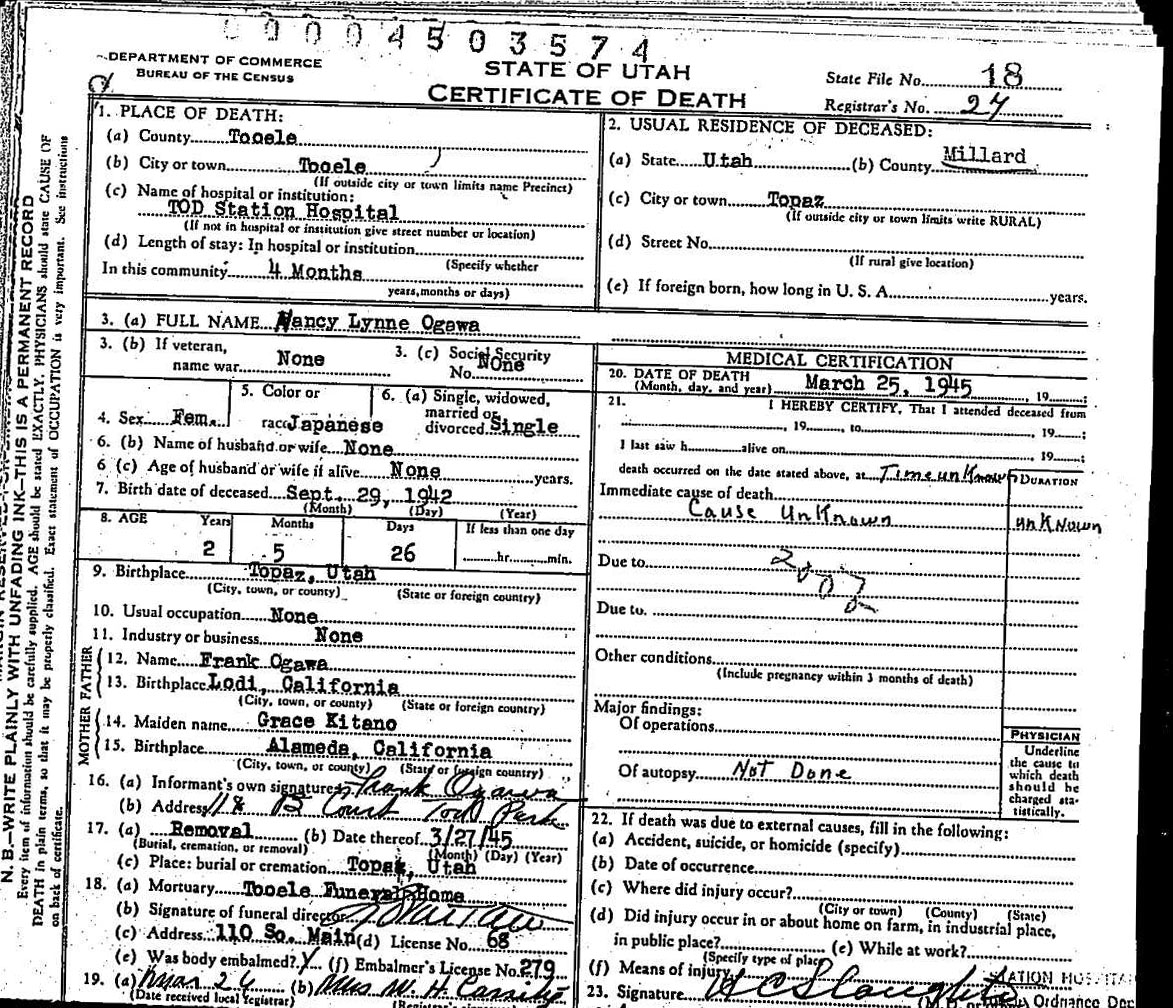 00004503574
DEPARTMENT OF COMMERCE
BUREAU OF THE CENSUS
STATE OF UTAH
CERTIFICATE OF DEATH
State File No. 18
Registrar's No. 27
1. PLACE OF DEATH:
(a) County Tooele
(b) City or town Tooele
(If outside city or town limits name Precinct)
(c) Name of hospital or institution:
TOD Station Hospital
(If not in hospital or institution give street number or location)
(d) Length of stay: In hospital or institution
(Specify whether
In this community 4 Months
years, months or days)
2. USUAL RESIDENCE OF DECEASED:
(a) State Utah (b) County Millard
(c) City or town Topaz
(If outside city or town limits write RURAL)
(d) Street No.
(If rural give location)
(e) If foreign born, how long in U. S. A. years.
3. (a) FULL NAME Nancy Lynne Ogawa
3. (b) If veteran, name war None
3. (c) Social Security No. NOne
4. Sex Fem.
5. Color or race Japanese
6. (a) Single, widowed, married or divorced Single
6. (b) Name of husband or wife None
6 (c) Age of husband or wife if alive None years.
7. Birth date of deceased Sept. 29, 1942
(Month) (Day) (Year)
8. AGE Years Months Days If less than one day
2 5 26 hr. min.
9. Birthplace Topaz, Utah
(City, town, or county) (State or foreign country)
10. Usual occupation None
11. Industry or business None
FATHER
12. Name Frank Ogawa
13. Birthplace Lodi, California
(City, town, or county) (State or foreign country)
MOTHER
14. Maiden name Grace Kitano
15. Birthplace Alameda, California
(City, town, or county) (State or foreign country)
16. (a) Informant's own signature Frank Ogawa
(b) Address B Court Tod Park
17. (a) Removal (b) Date thereof 3/27/45
(Burial, cremation, or removal) (Month) (Day) (Year)
(c) Place: burial or cremation Topaz, Utah
18. (a) Mortuary Tooele Funeral Home
(b) Signature of funeral director
(c) Address 110 So. Main (d) License No. 68
(e) Was body embalmed? Y (f) Embalmer's License No. 279
19. (a) Mar 26 (b) Mrs W. H.
(Date received local registrar) (Registrar's
MEDICAL CERTIFICATION
20. DATE OF DEATH
(Month, day, and year) March 25, 1945, 19
21. I HEREBY CERTIFY, That I attended deceased from
, 19 , to , 19 ;
I last saw h alive on , 19 ;
death occurred on the date stated above, at Time unknown
DURATION
Immediate cause of death
Cause UnKnown unKNown
Due to
Due to.
Other conditions
(Include pregnancy within 3 months of death)
Major findings:
Of operations
Of autopsy Not Done
PHYSICIAN
Underline
the cause to
which death
should be
charged sta-
tistically.
22. If death was due to external causes, fill in the following:
(a) Accident, suicide, or homicide (specify)
(b) Date of occurrence
(c) Where did injury occur?
(City or town) (County) (State)
(d) Did injury occur in or about home on farm, in industrial place,
in public place? (e) While at work?
(Specify type of place)
(f) Means of injury
STATION HOSPITAL
23. Signature
Ordnance
N. B.—WRITE PLAINLY WITH UNFADING INK—THIS IS A PERMANENT RECORD
Every item of information should be carefully supplied. AGE should be stated EXACTLY. PHYSICIANS should state CAUSE OF
DEATH in plain terms, so that it may be properly classified. Exact statement of OCCUPATION is very important. See instructions
on back of certificate.